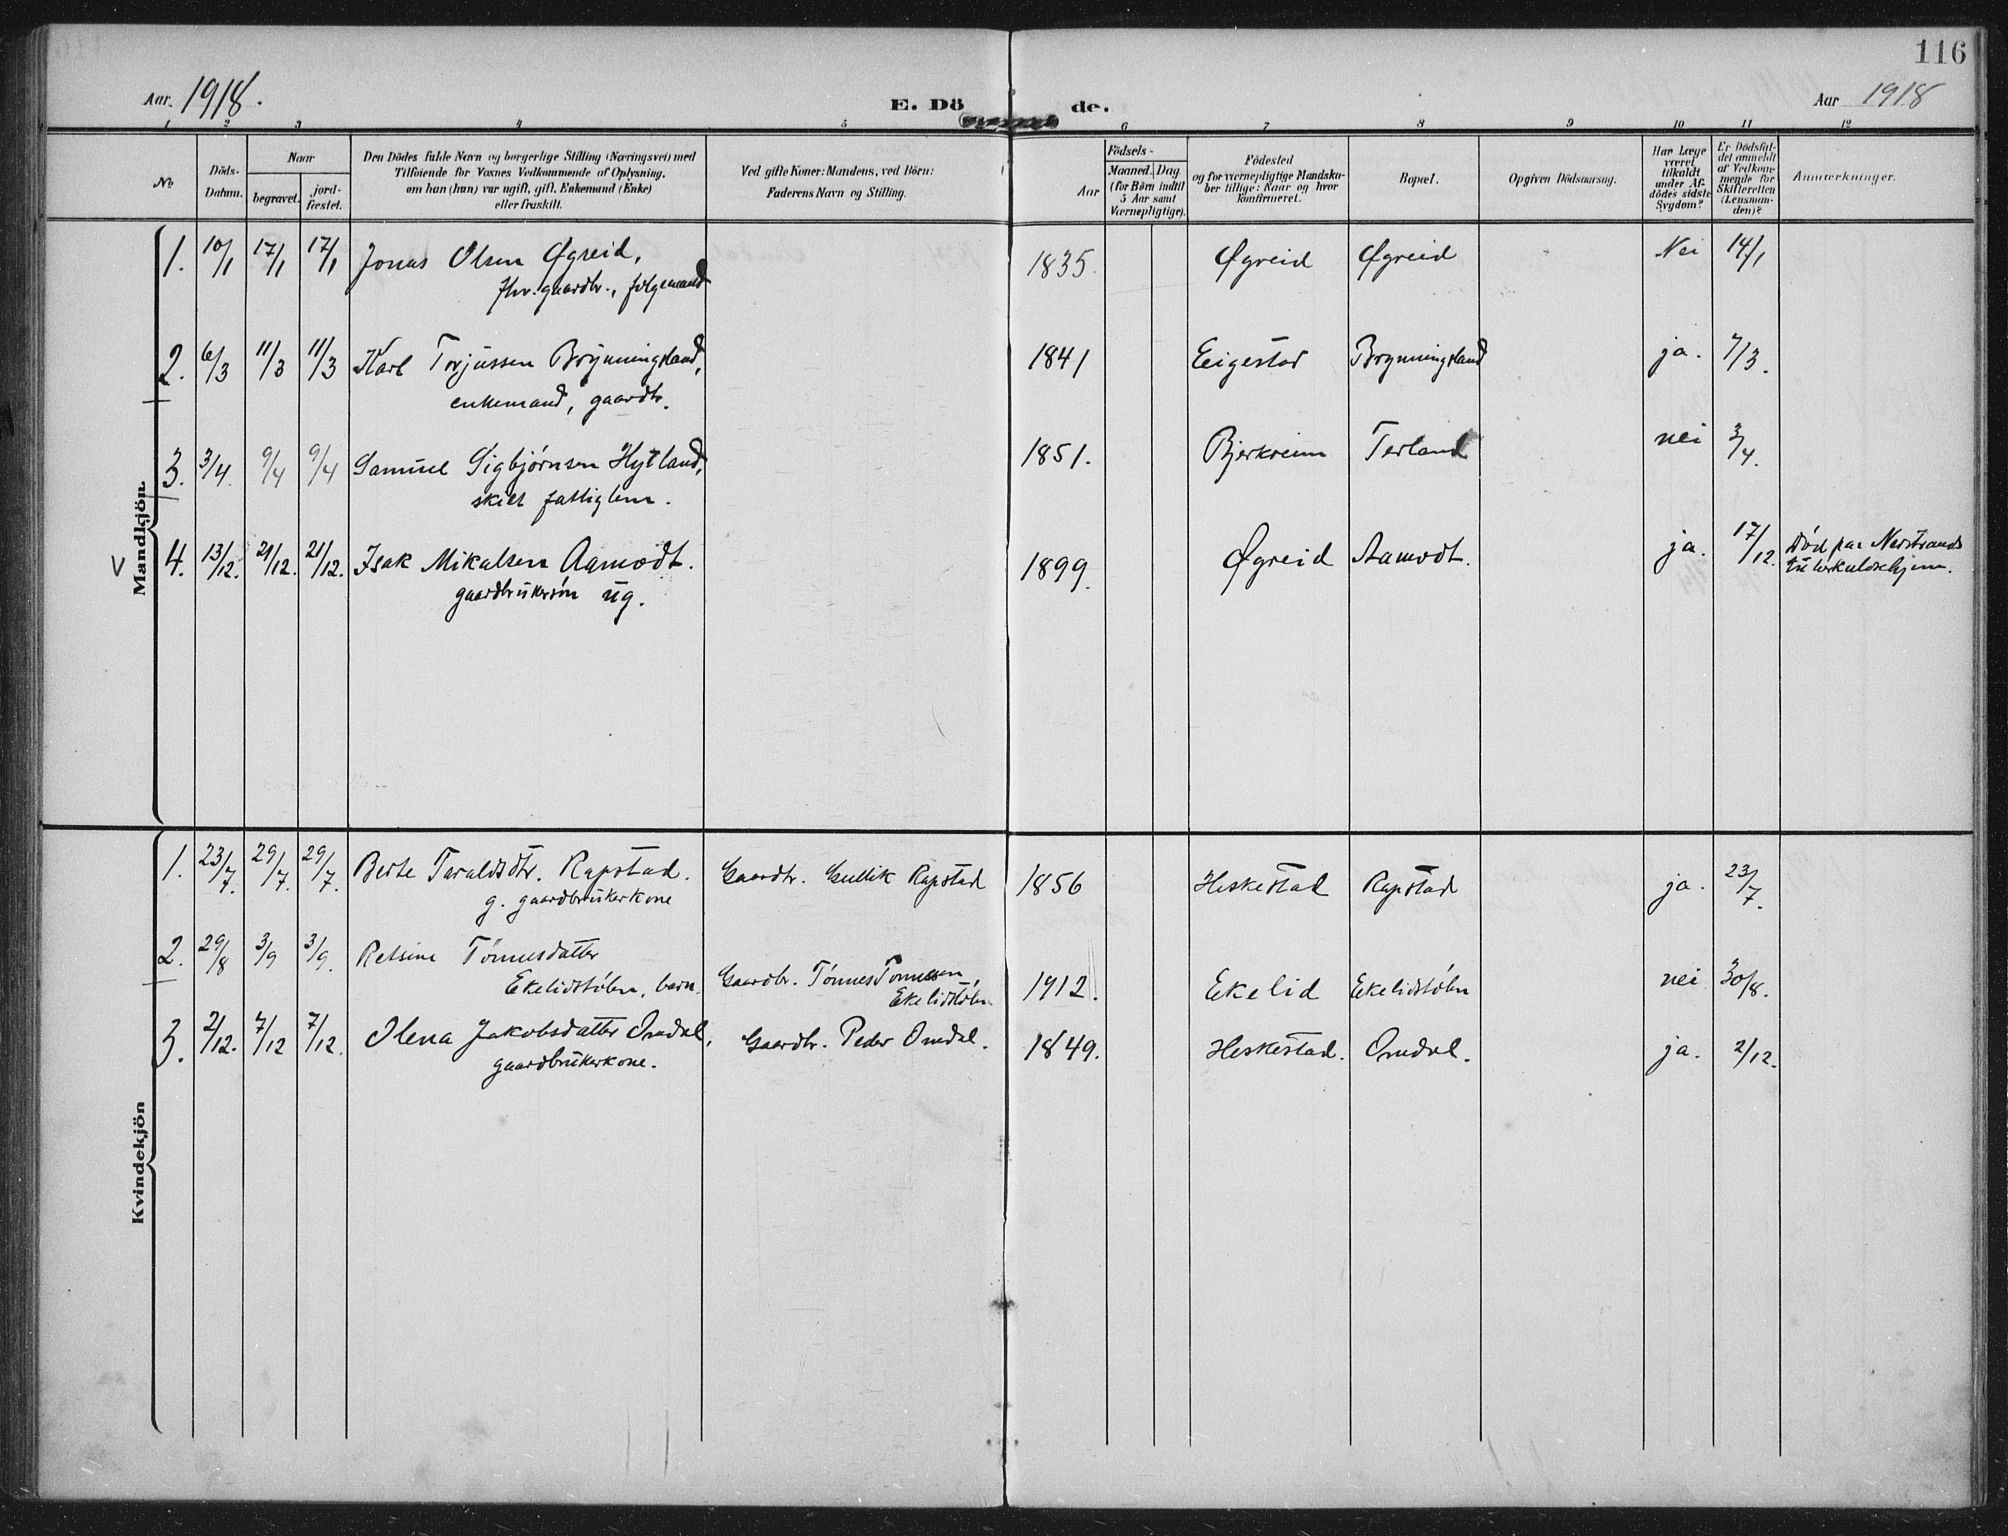 116
Aar. 1918.
E. Döde.
Aar 1918
1 2 3 4 5 6 7 8 9 10 11 12
No.
Döds-Datum.
Naar
begravet.
jord-fæstet.
Den Dödes fulde Navn og borgerlige Stilling (Næringsvei) med
Tilföiende for Voxnes Vedkommende af Oplysning,
om han (hun) var ugift, gift, Enkemand (Enke)
eller fraskilt.
Ved gifte Koner: Mandens, ved Börn:
Faderens Navn og Stilling.
Födsels-
Aar
Maaned. Dag
(for Börn indtil
5 Aar samt
Værnepligtige).
Födested
og for værnepligtige Mandska-
ber tillige: Naar og hvor
konfirmeret.
Bopæl.
Opgiven Dödsaarsag.
Har Læge
været
tilkaldt
under Af-
dödes sidste
Sygdom?
Er Dödsfal-
det anmeldt
af Vedkom-
mende for
Skifteretten
(Lensman-
den)?
Anmærkninger.
Mandkjön.
1. 10/1 17/1 17/1 Jonas Olsen Øgreid, 1835. Øgreid Øgreid Nei 14/1
fhv. gaardbr., folgemand
2. 6/3 11/3 11/3 Karl Torjussen Brynningsland, 1841 Eigestad Brynningsland ja. 7/3.
enkemand, gaardbr.
3. 3/4. 9/4 9/4 Samuel Sigbjørnsen Hytland, 1851. Bjerkreim Terland nei 3/4.
skilt fattiglem.
V 4. 13/12. 21/12. 21/12. Isak Mikalsen Aamodt. 1899. Øgreid Aamodt. ja. 17/12. Død paa Nerstrands
gaardbrukersøn ug. tuberkulosehjem.
Kvindekjön
1. 23/7. 29/7. 29/7. Berte Taraldsdtr. Rapstad. Gaardbr. Gullik Rapstad 1856 Heskestad Rapstad ja. 23/7.
g. gaardbrukerkone
2. 29/8 3/9 3/9. Retsine Tönnesdatter
Ekelidstølen, barn. Gaardbr. Tønnes Tønnesen, Ekelidstølen 1912. Ekelid Ekelidstølen nei 30/8.
3. 2/12. 7/12 7/12. Olena Jakobsdatter Omdal, Gaardbr. Peder Omdal. 1849. Heskestad. Omdal. ja. 2/12.
gaardbrukerkone.